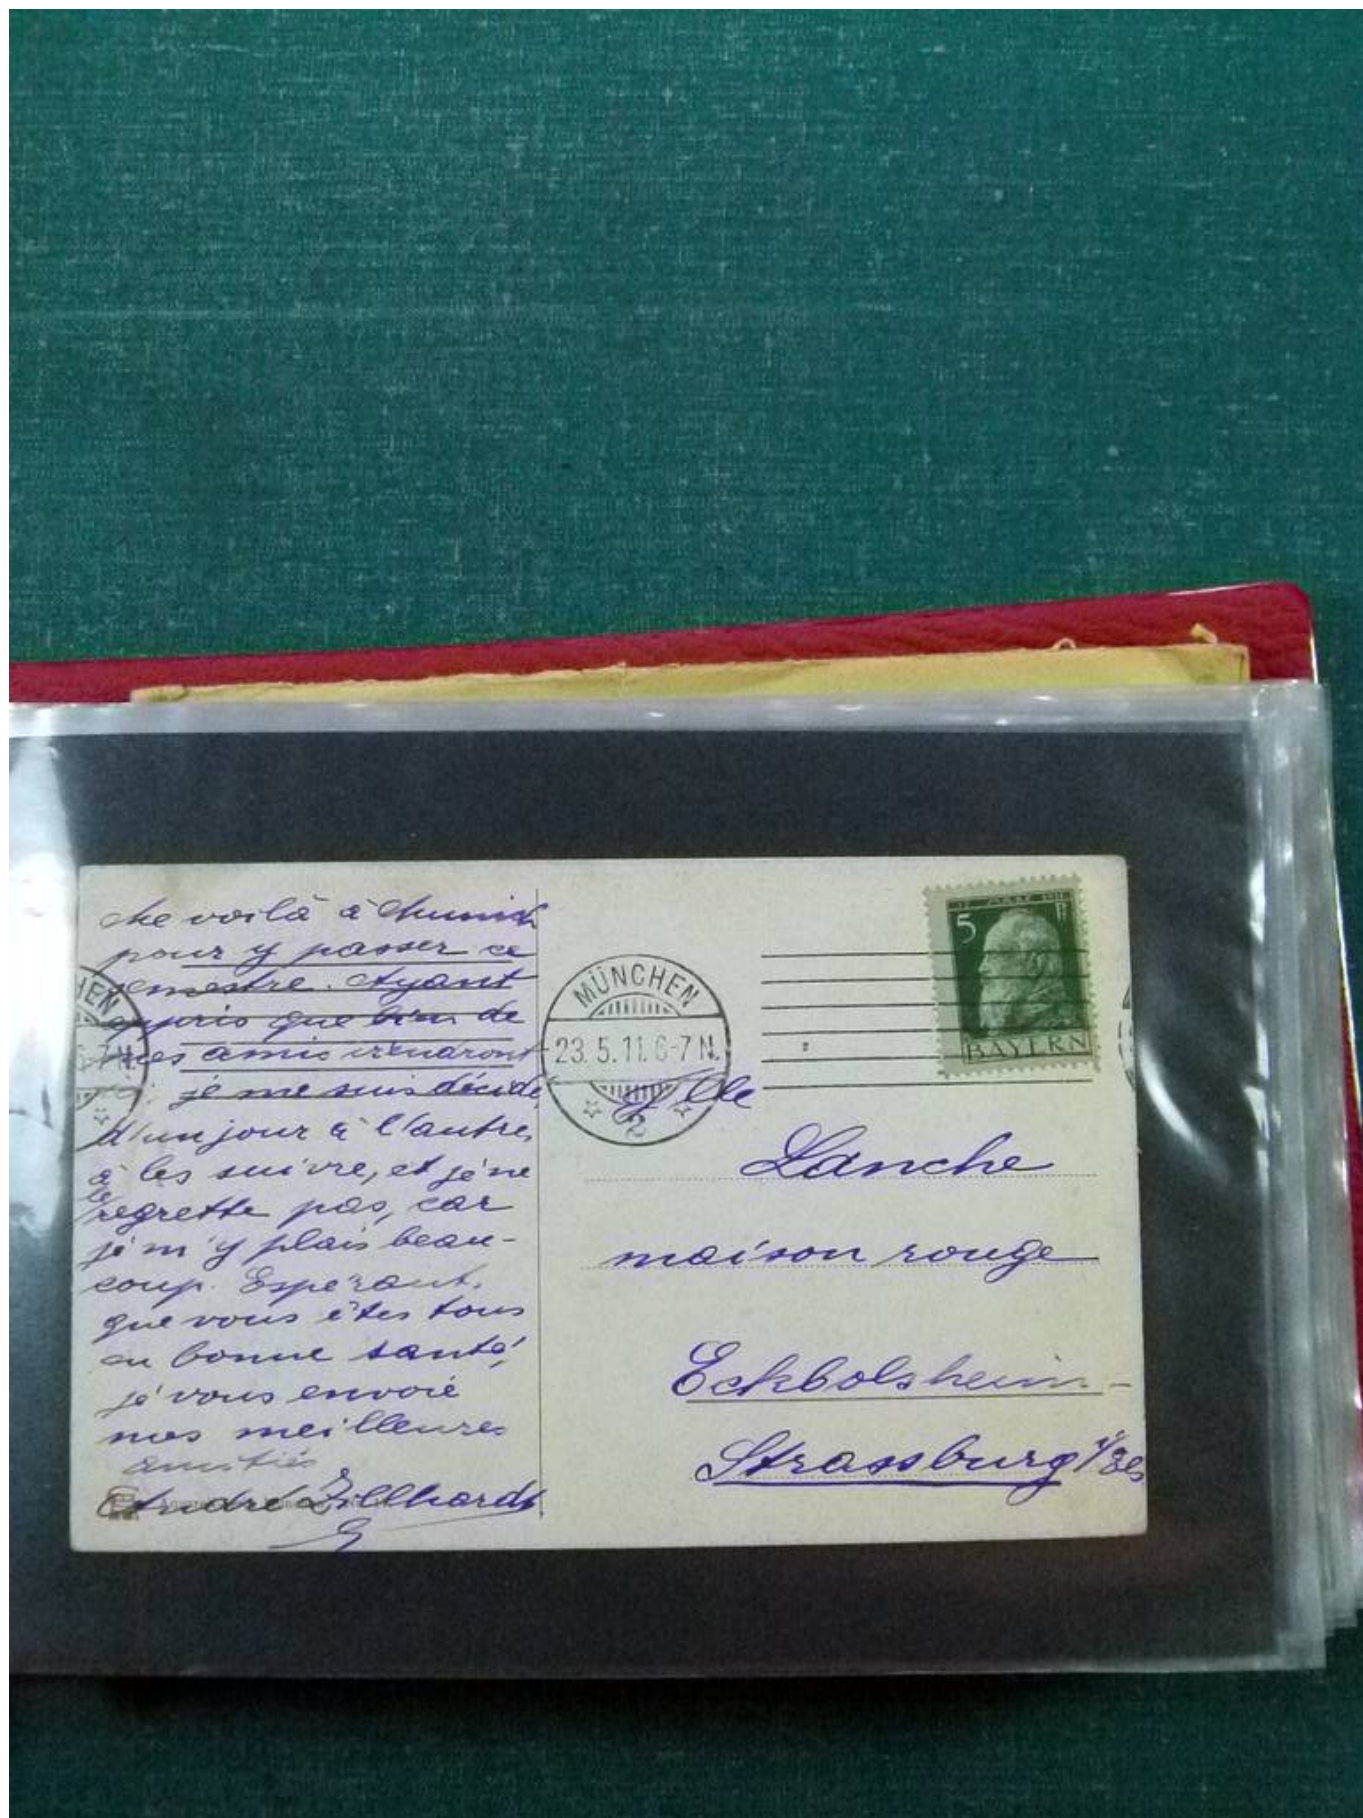 Me voilà à Munich
pour y passer ce
semestre. Ayant
appris que bien de
mes amis viendront
je me suis décidé,
d'un jour à l'autre,
à les suivre, et je ne
le
regrette pas, car
je m'y plais beau-
coup. Espérant,
que vous êtes tous
en bonne santé,
je vous envoie
mes meilleures
amitiés
André Zillhardt
HEN
6-7 N.
MÜNCHEN
23.5.11. 6-7 N.
2
5 Pf
BAYERN
Mlle
Lanche
maison rouge
Eckbolsheim-
Strassburg i/Els